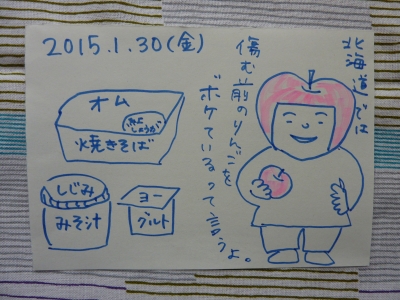 2015.1.30(金)
北海道では
傷む前のりんごを
ボケているって言うよ。
オム
焼きそば
しじみ
みそ汁
ヨー
グルト